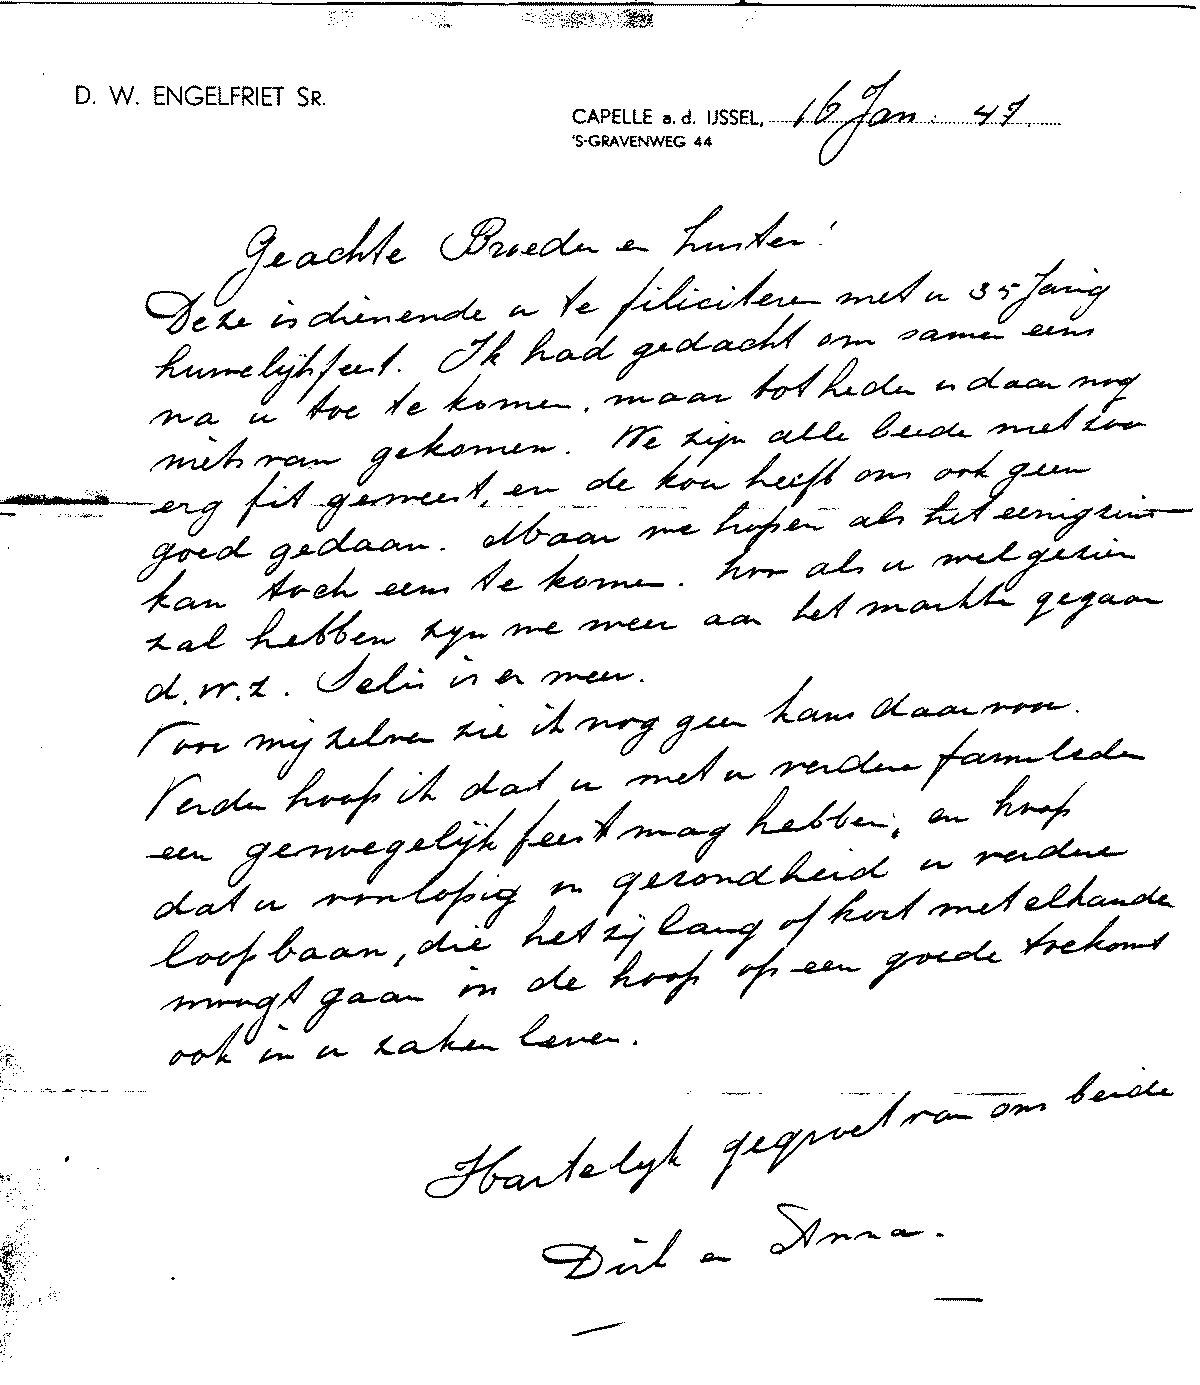 D. W. ENGELFRIET SR.
CAPELLE a. d. IJSSEL, 16 Jan. 47.
'S-GRAVENWEG 44
Geachte Broeder en Zuster!
Deze is dienende u te filiciteren met u 35 Jarig
huwelijksfeest. Ik had gedacht om samen eens
na u toe te komen, maar tot heden is daar nog
niets van gekomen. We zijn alle beide niet zoo
erg fit geweest, en de kou heeft ons ook geen
goed gedaan. Maar we hopen als het eenigzins
kan toch eens te komen. Zoo als u wel gezien
zal hebben zijn we weer aan het gegaan
d.w.z. is er weer.
Voor mijzelven zie ik nog geen kans daarvoor.
Verder hoop ik dat u met u verdere familieleden
een genoegelijk feest mag hebben, en hoop
dat u voorlopig in gezondheid u verdere
loopbaan, die het zij lang of kort met elkander
moogt gaan in de hoop op een goede toekomst
ook in u zaken leven.
Hartelijk gegroet van ons beide
Dirk en Anna.